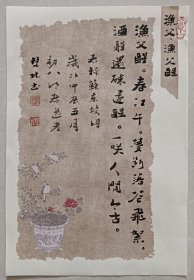 漁父 漁父醒
漁父醒。春江午。夢斷落花飛絮。
酒醒還醉還醒。一咲人間今古。
蘇東坡詞
歲次甲辰五月
初八
書